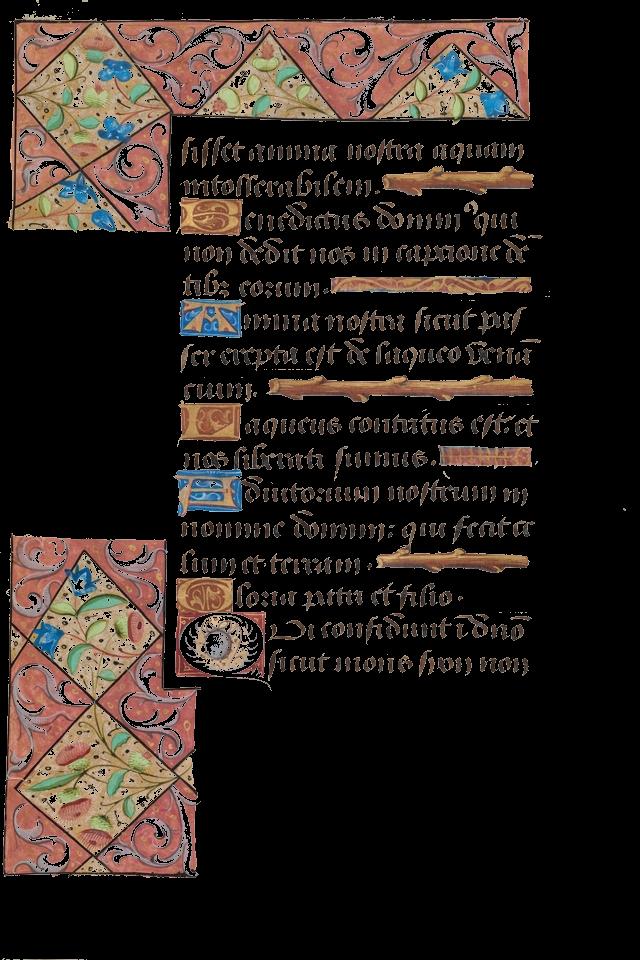 sisset anima nostra aquam
intollerabilem.
Benedictus domin⁹ qui
non dedit nos in captione dē
tibꝫ eorum.
Anima nostra sicut pas
ser erepta est de laqueo venā
cium.
Laqueus contritus est: et
nos liberati sumus.
Adiutorium nostrum in
nomine domini: qui fecit ce
lum et terram.
Gloria patri et filio.
Qui confidunt ī dn̄o
sicut mons syon non